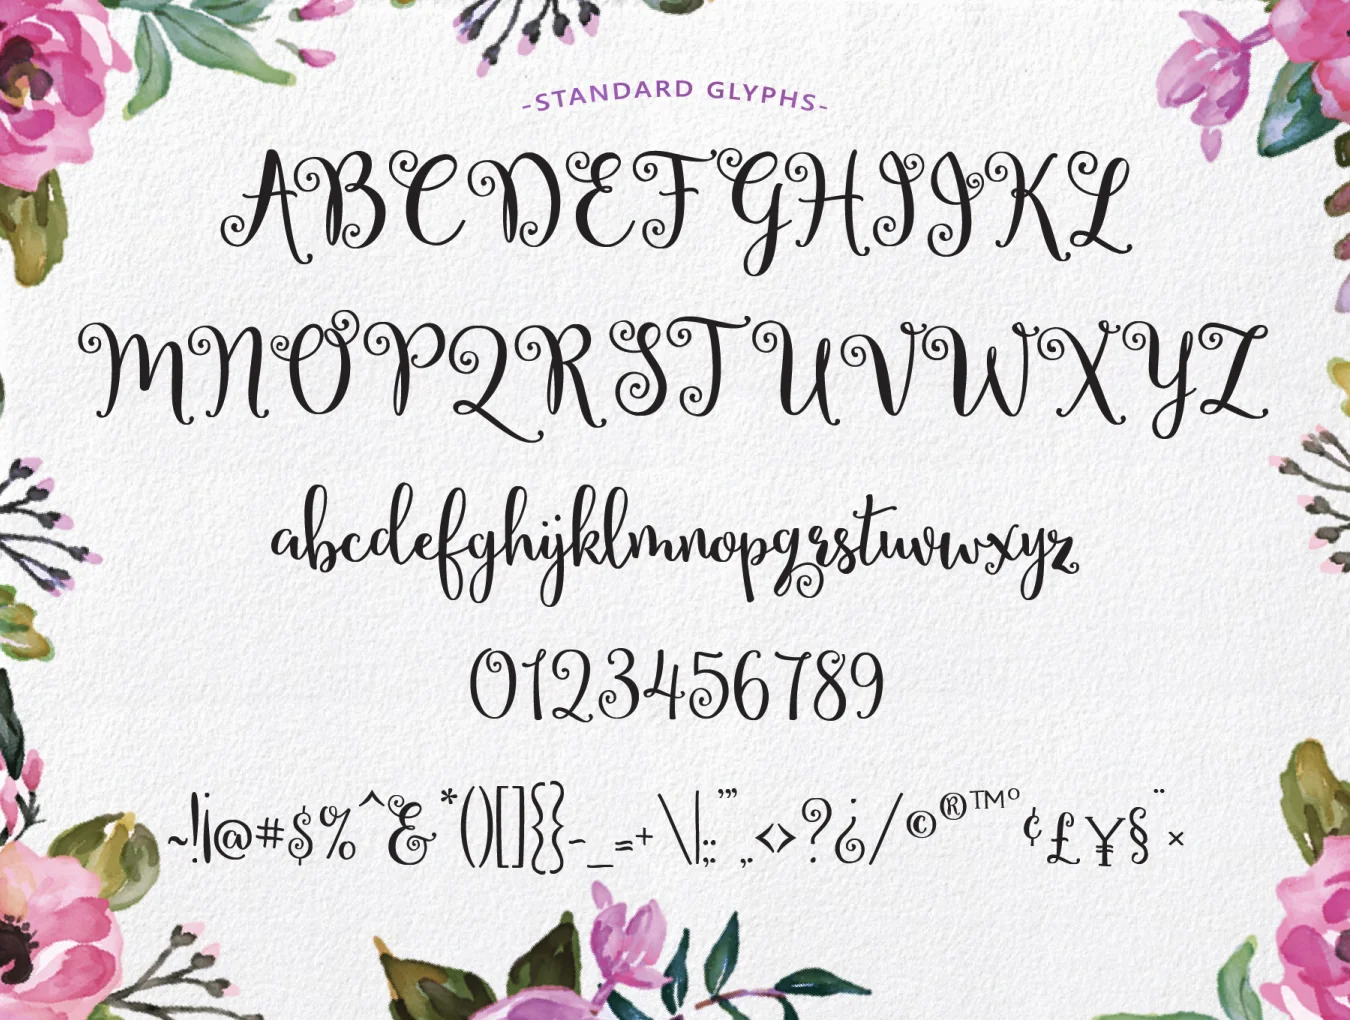 -STANDARD GLYPHS-
ABCDEFGHIJKL
MNOPQRSTUVWXYZ
abcdefghijklmnopqrstuvwxyz
0123456789
~!¡@#$%^&*()[]{}-_=+\|;:'",.<>?¿/©®™°¢£¥§¨×